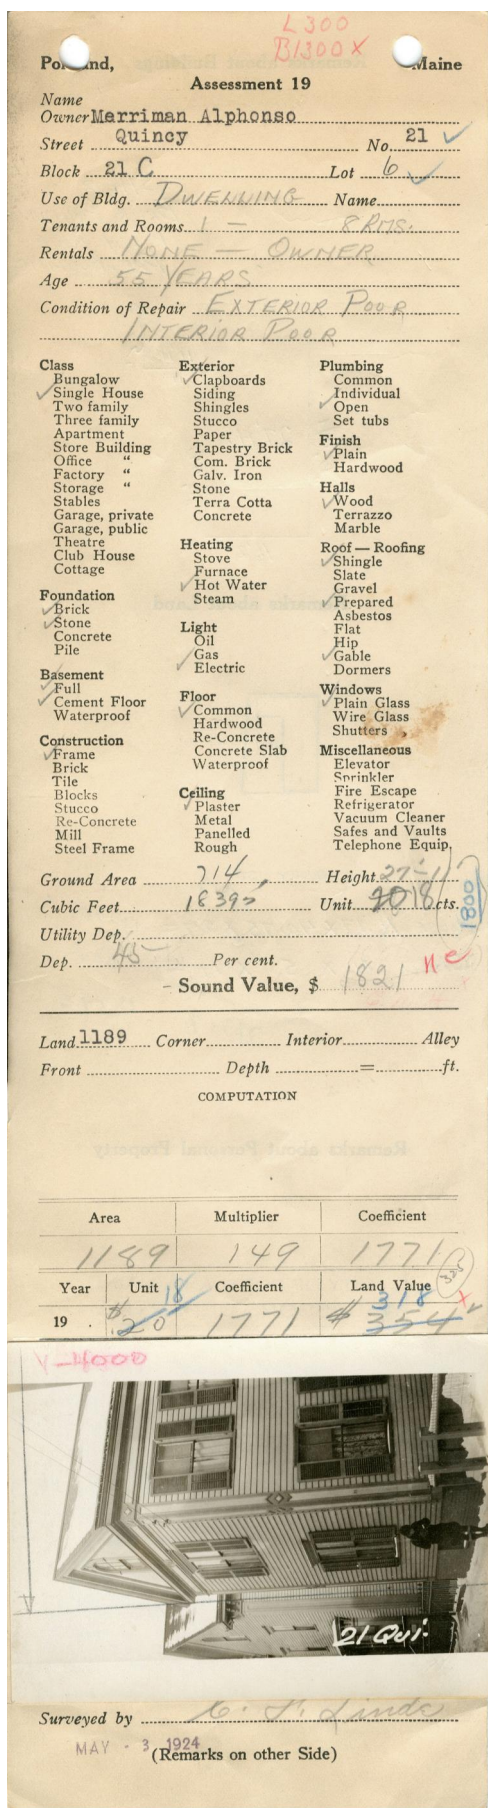 L 300
B1300 X
Portland, Maine
Assessment 19
Name
Owner Merriman Alphonso
Street Quincy No. 21 ✓
Block 21 C Lot 6 ✓
Use of Bldg. DWELLING Name
Tenants and Rooms 1 — 8 RMS.
Rentals NONE — OWNER
Age 55 YEARS
Condition of Repair EXTERIOR POOR
INTERIOR POOR
Class
Bungalow
✓ Single House
Two family
Three family
Apartment
Store Building
Office "
Factory "
Storage "
Stables
Garage, private
Garage, public
Theatre
Club House
Cottage
Foundation
✓ Brick
✓ Stone
Concrete
Pile
Basement
✓ Full
✓ Cement Floor
Waterproof
Construction
✓ Frame
Brick
Tile
Blocks
Stucco
Re-Concrete
Mill
Steel Frame
Exterior
✓ Clapboards
Siding
Shingles
Stucco
Paper
Tapestry Brick
Com. Brick
Galv. Iron
Stone
Terra Cotta
Concrete
Heating
Stove
Furnace
✓ Hot Water
Steam
Light
Oil
Gas
✓ Electric
Floor
✓ Common
Hardwood
Re-Concrete
Concrete Slab
Waterproof
Ceiling
✓ Plaster
Metal
Panelled
Rough
Plumbing
Common
Individual
✓ Open
Set tubs
Finish
✓ Plain
Hardwood
Halls
✓ Wood
Terrazzo
Marble
Roof — Roofing
✓ Shingle
Slate
Gravel
✓ Prepared
Asbestos
Flat
Hip
✓ Gable
Dormers
Windows
✓ Plain Glass
Wire Glass
Shutters
Miscellaneous
Elevator
Sprinkler
Fire Escape
Refrigerator
Vacuum Cleaner
Safes and Vaults
Telephone Equip.
Ground Area 714 Height 27
Cubic Feet 18392 Unit 20 18 cts.
1800
Utility Dep.
Dep. 45 Per cent.
Sound Value, $ 1821
Land 1189 Corner Interior Alley
Front Depth = ft.
COMPUTATION
Area Multiplier Coefficient
1189 149 1771
Year Unit Coefficient Land Value
325
18 318 X
19 . $ 20 1771 $ 354
V-4000
21 Qui.
Surveyed by
MAY - 3 1924
(Remarks on other Side)